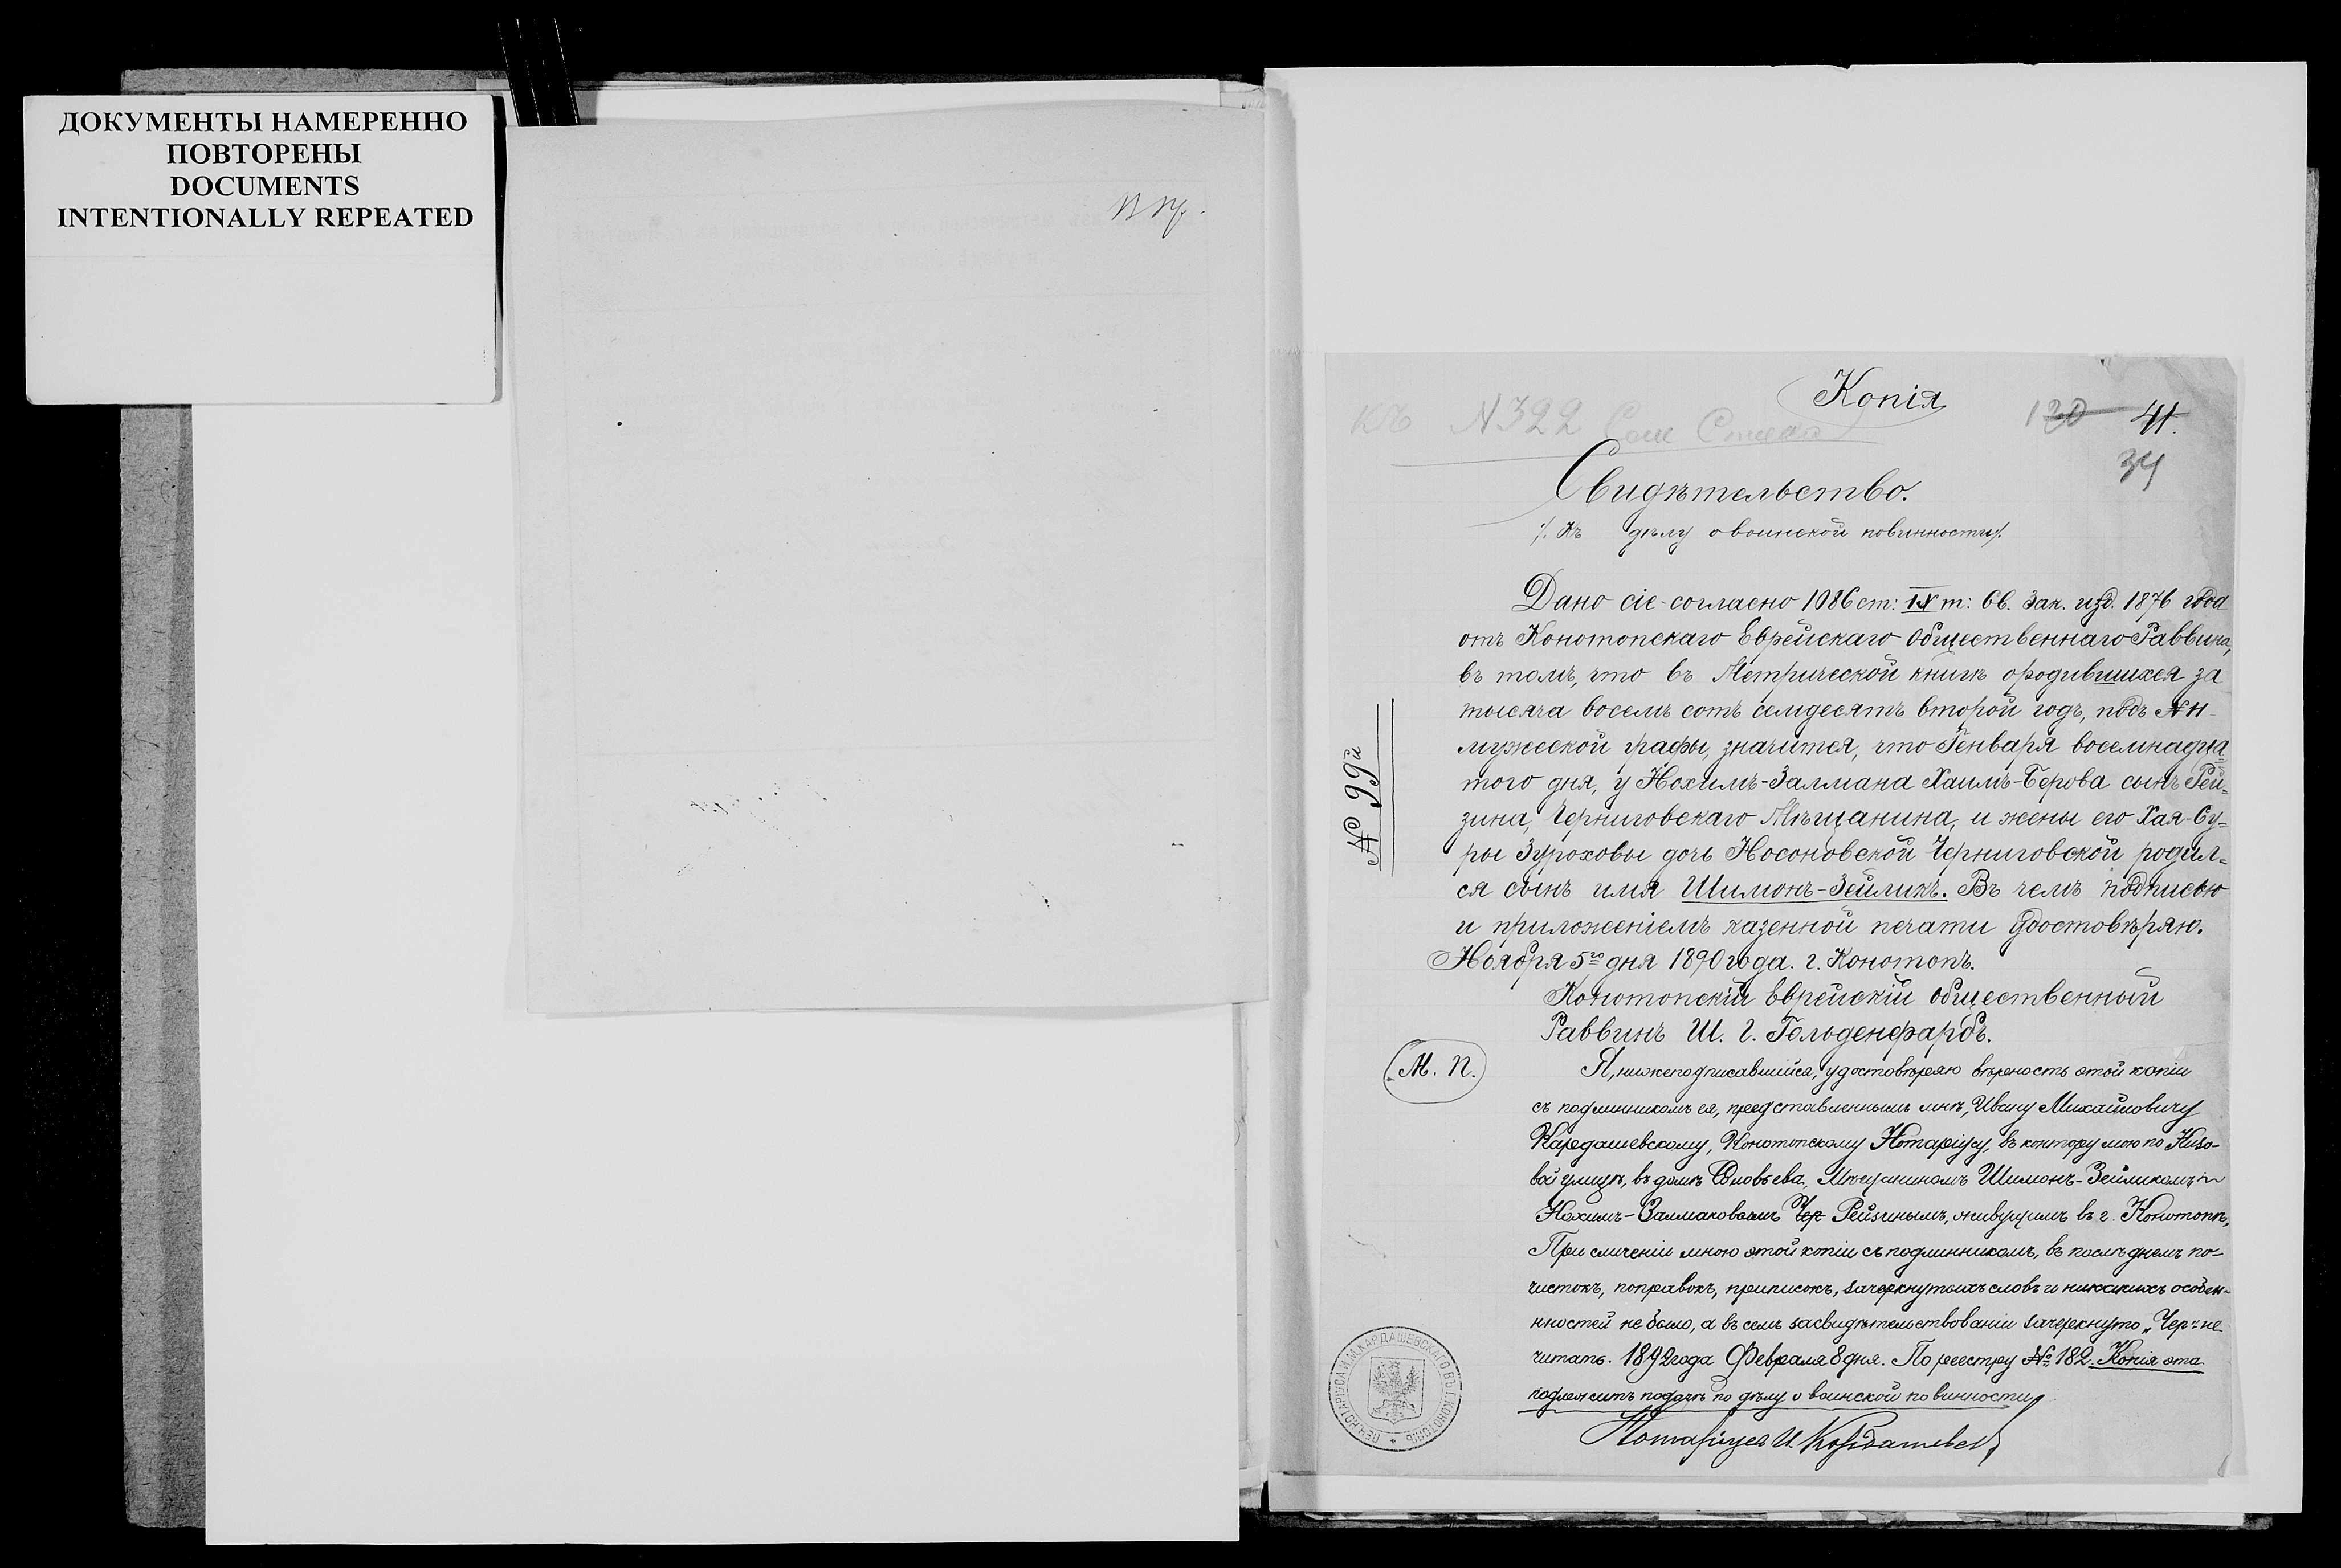 ДОКУМЕНТЫ НАМЕРЕННО
ПОВТОРЕНЫ
DOCUMENTS
INTENTIONALLY REPEATED
Копія
къ N322
120 41.
34
Свидѣтельство.
/. Къ дѣлу о воинской повинности /.
Дано сіе согласно 1086 ст: IX т: Св. Зак. изд. 1876 года
отъ Конотопскаго Еврейскаго Общественнаго Раввина,
въ томъ, что въ Метрической книгѣ о родившихся за
тысяча восемь сотъ семдесятъ второй годъ, подъ №
мужеской графы, значится, что Генваря восемнадца
того дня, у Нохимъ-Залмана Хаимъ-Берова сынъ Рей=
зина, Черниговскаго Мѣщанина, и жены его Хая-Су=
ры Зуроховы дочь Носоновской Черниговской родил=
ся сынъ имя Шимонъ-Зейликъ. Въ чемъ подписью
и приложеніемъ казенной печати удостовѣряю.
Ноября 5го дня 1890 года. г. Конотопъ.
Конотопскій Еврейскій общественный
Раввинъ Ш. Г. Гольденфарбъ.
№ 99й
М. П.
Я, нижеподписавшійся, удостовѣряю вѣрность этой копіи
съ подлинникомъ ея, представленнымъ мнѣ, Ивану Михайловичу
Кардашевскому, Конотопскому Нотаріусу, въ контору мою по Низо-
вой улицѣ, въ домѣ Соловьева, Мѣщаниномъ Шимонъ-Зейликомъ
Нохимъ-Залмановымъ Чер Рейзинымъ, живущимъ въ г. Конотопѣ,
При сличеніи мною этой копіи съ подлинникомъ, въ послѣднемъ по-
чистокъ, поправокъ, приписокъ, зачеркнутыхъ словъ и никакихъ особен-
ностей не было, а въ семъ засвидѣтельствованіи зачеркнуто „Чер" не
читать. 1892 года Февраля 8 дня. По реестру № 182. Копія эта
подлежитъ подачѣ по дѣлу о воинской повинности
Нотаріусъ И. Кардашевскій
ПЕЧ. НОТАРІУСА И. М. КАРДАШЕВСКАГО ВЪ Г. КОНОТОПѢ